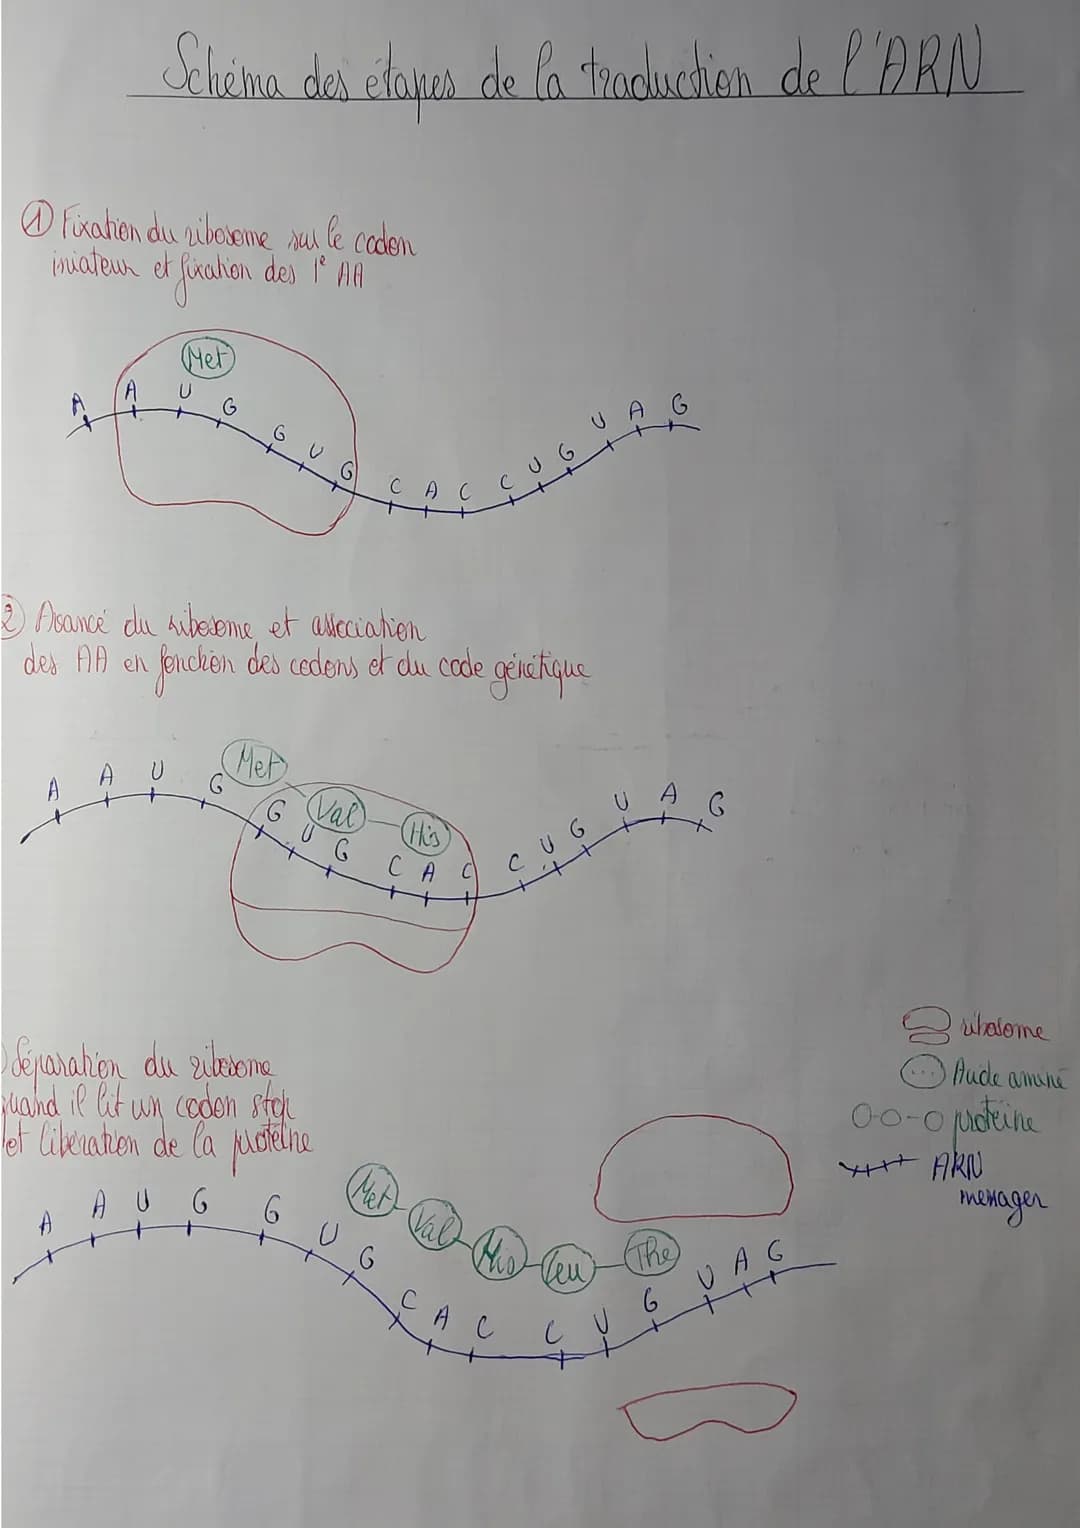 Schéma des étapes de la traduction de l'ARN
① Fixation du ribosome sur le codon
iniateur et fixation des 1e AA
Met
A A U G G U G C A C C U G U A G
② Avancé du ribosome et association
des AA en fonction des codons et du code génétique
Met Val His
A A U G G U G C A C C U G U A G
ribosome
Acide aminé
protéine
ARN
messager
séparation du ribosome
quand il lit un codon stop
et libération de la protéine
Met Val His Leu The
A A U G G U G C A C C U G U A G